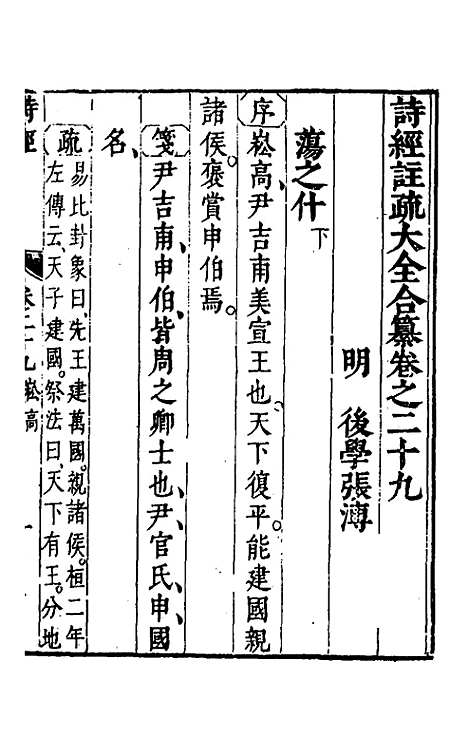 詩經註疏大全合纂卷之二十九
明 後學張溥
蕩之什 下
序 崧高、尹吉甫美宣王也、天下復平。能建國親
諸侯。褒賞申伯焉。
箋 尹吉甫、申伯、皆周之卿士也、尹官氏、申國
名、
疏 易比封象曰、先王建萬國。親諸侯。桓二年
左傳云、天子建國。祭法曰、天下有王。分地
詩經 卷二十九崧高 一